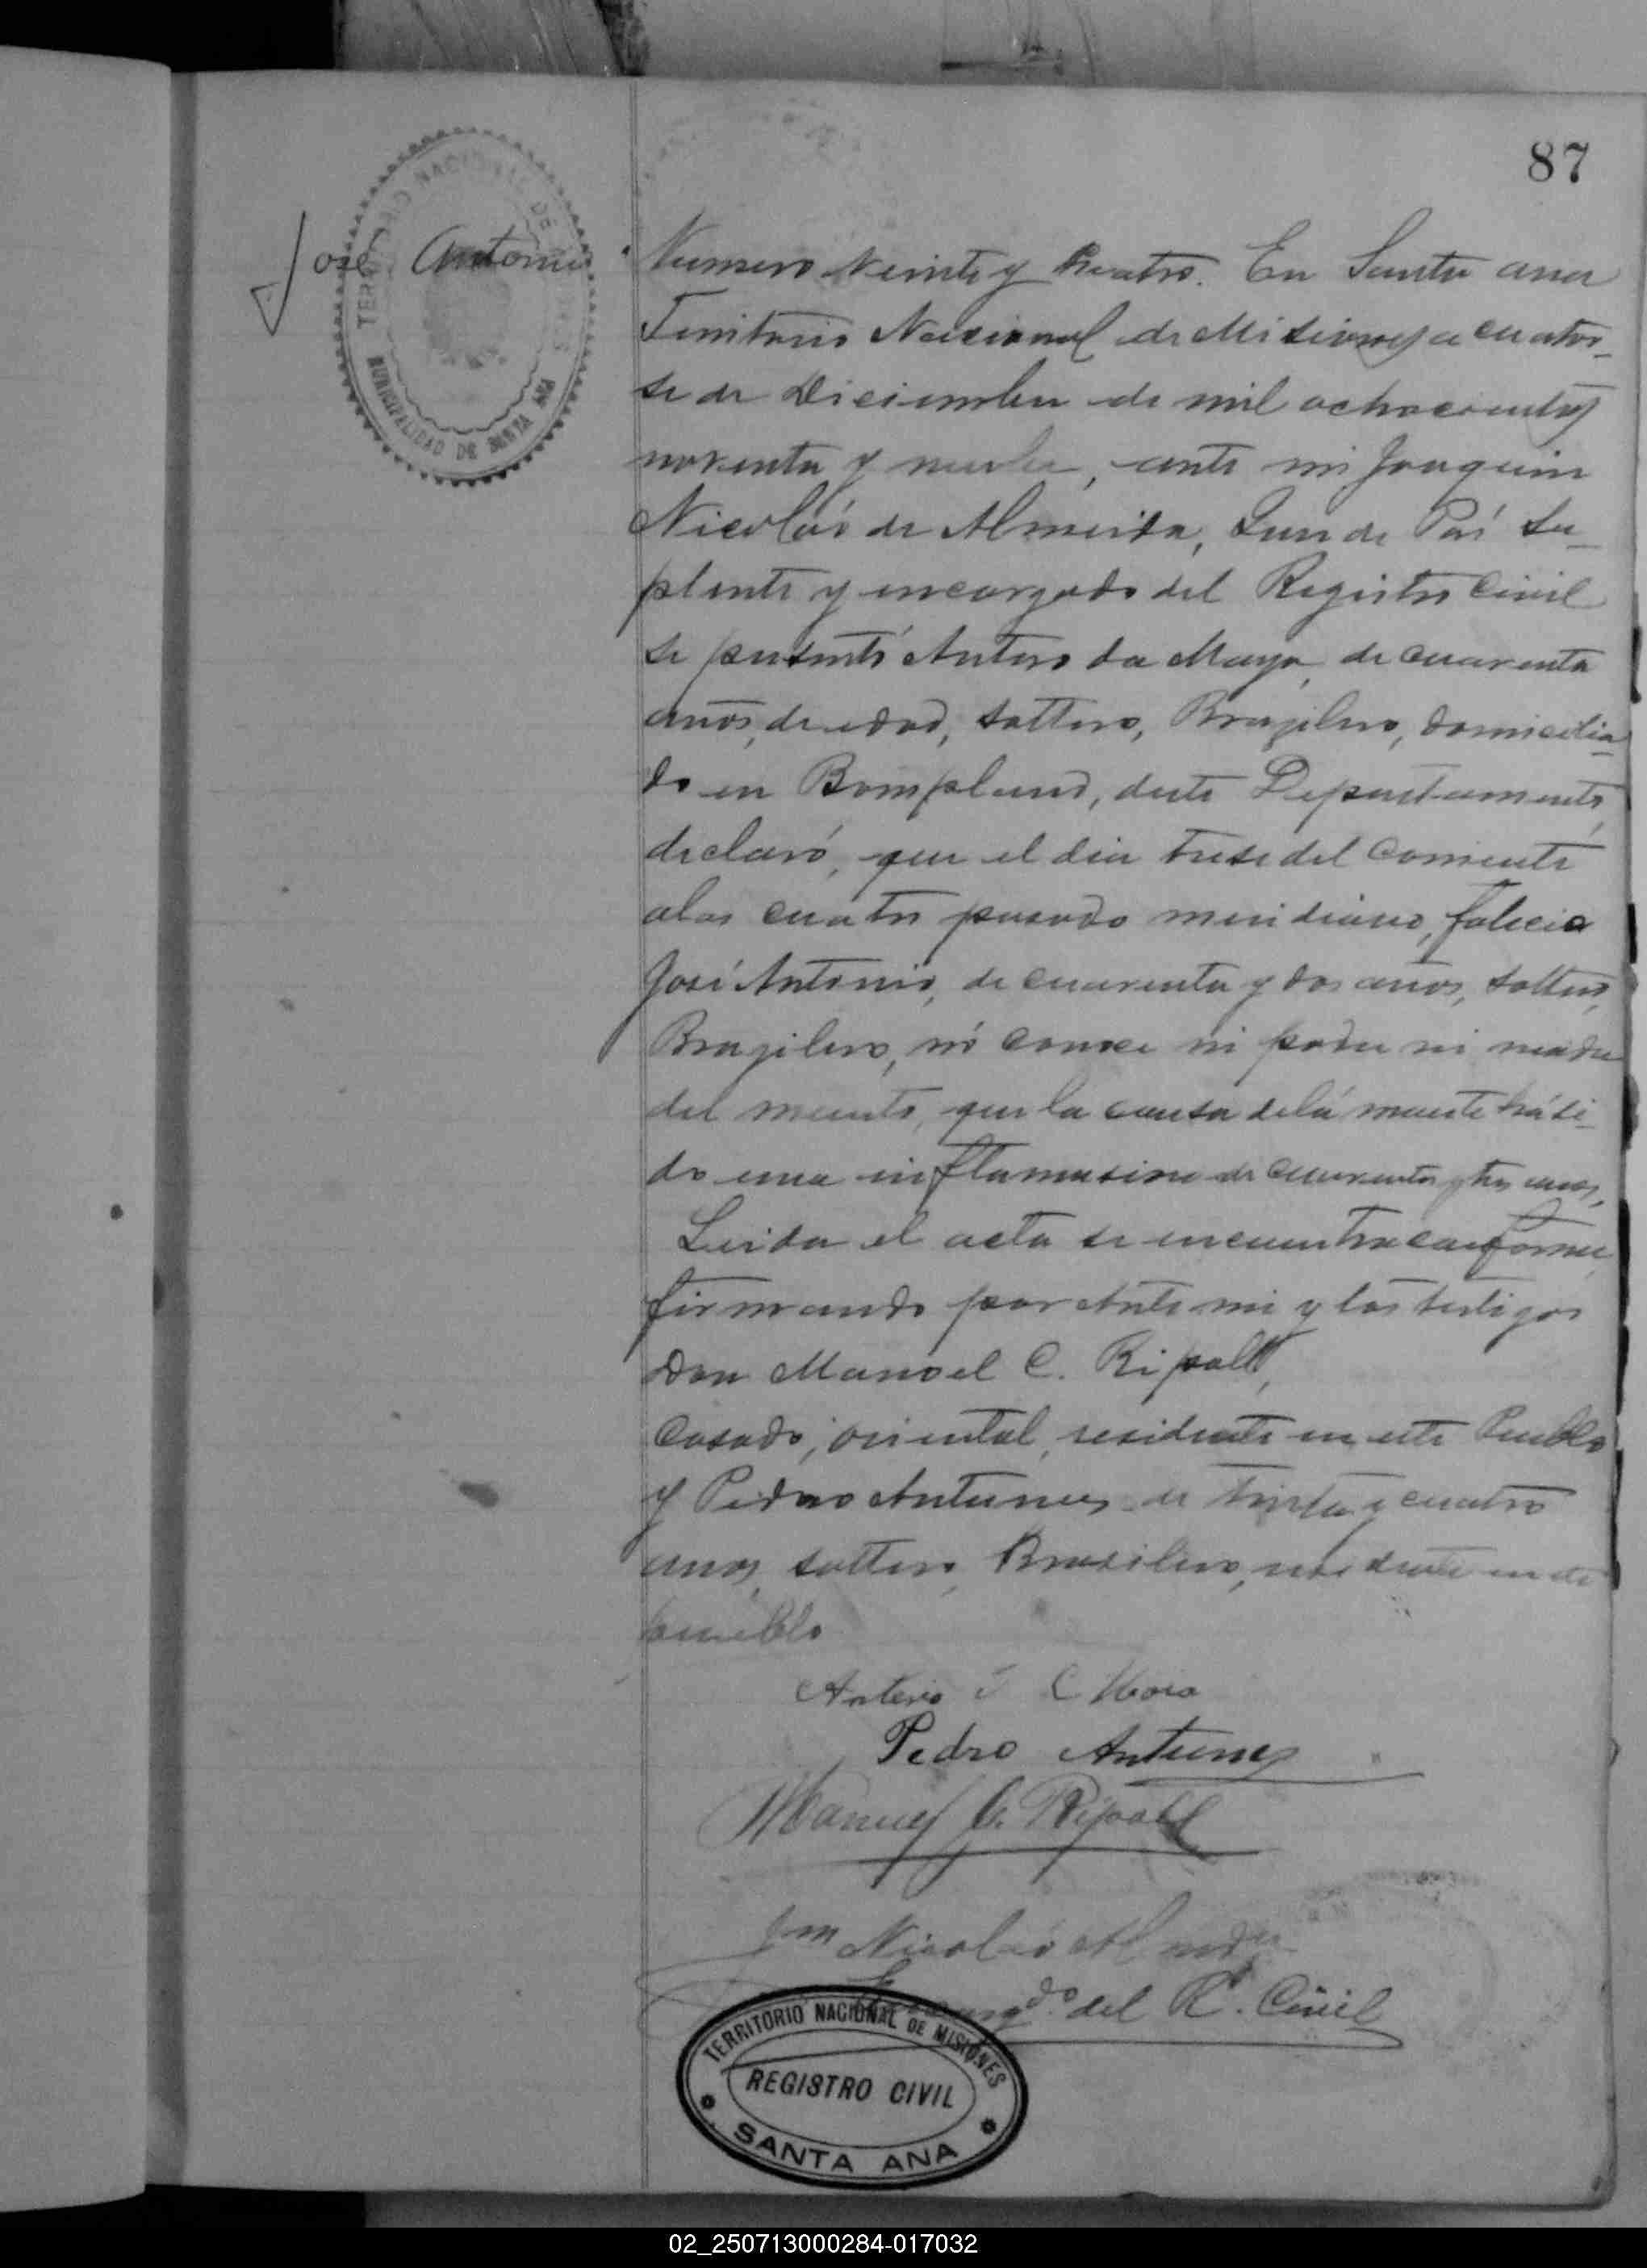 87
José Antonio
TERRITORIO NACIONAL DE MISIONES
MUNICIPALIDAD DE SANTA ANA
Numero Veinte y Cuatro. En Santa ana
Territorio Nacional de Misiones a cuator-
se de Diciembre de mil ochocientos
noventa y nueve, ante mi Joaquin
Nicolás de Almeida, Jues de Pas Su-
plente y encargado del Registro Civil
se presentó Antero da Maya, de cuarenta
años, de edad, soltero, Brazilero, domicilia-
do en Bompland, deste Departamento,
declaró, que el dia trese del corriente
alas cuatro pasado meridiano, falecio
José Antonio, de cuarenta y dos años, soltero,
Brazilero, nó conoce ni padre ni madre
del muerto, que la causa delá muerte há si-
do una inflamasion de cuarenta y tres anos,
Leida el acta se encuentra conforme,
firmando por ante mi y los testigos
Don Manoel C. Ripoll,
Casado, oriental, residente en este Pueblo
y Pedro Antunes de trinta y cuatro
anos, soltero, Brasilero, residente en este
pueblo
Anterio C Maia
Pedro Antunes
Manuel C. Ripoll
Jm Nicolás Almeida
Encargdo. del R. Civil
TERRITORIO NACIONAL DE MISIONES
REGISTRO CIVIL
SANTA ANA
02_250713000284-017032